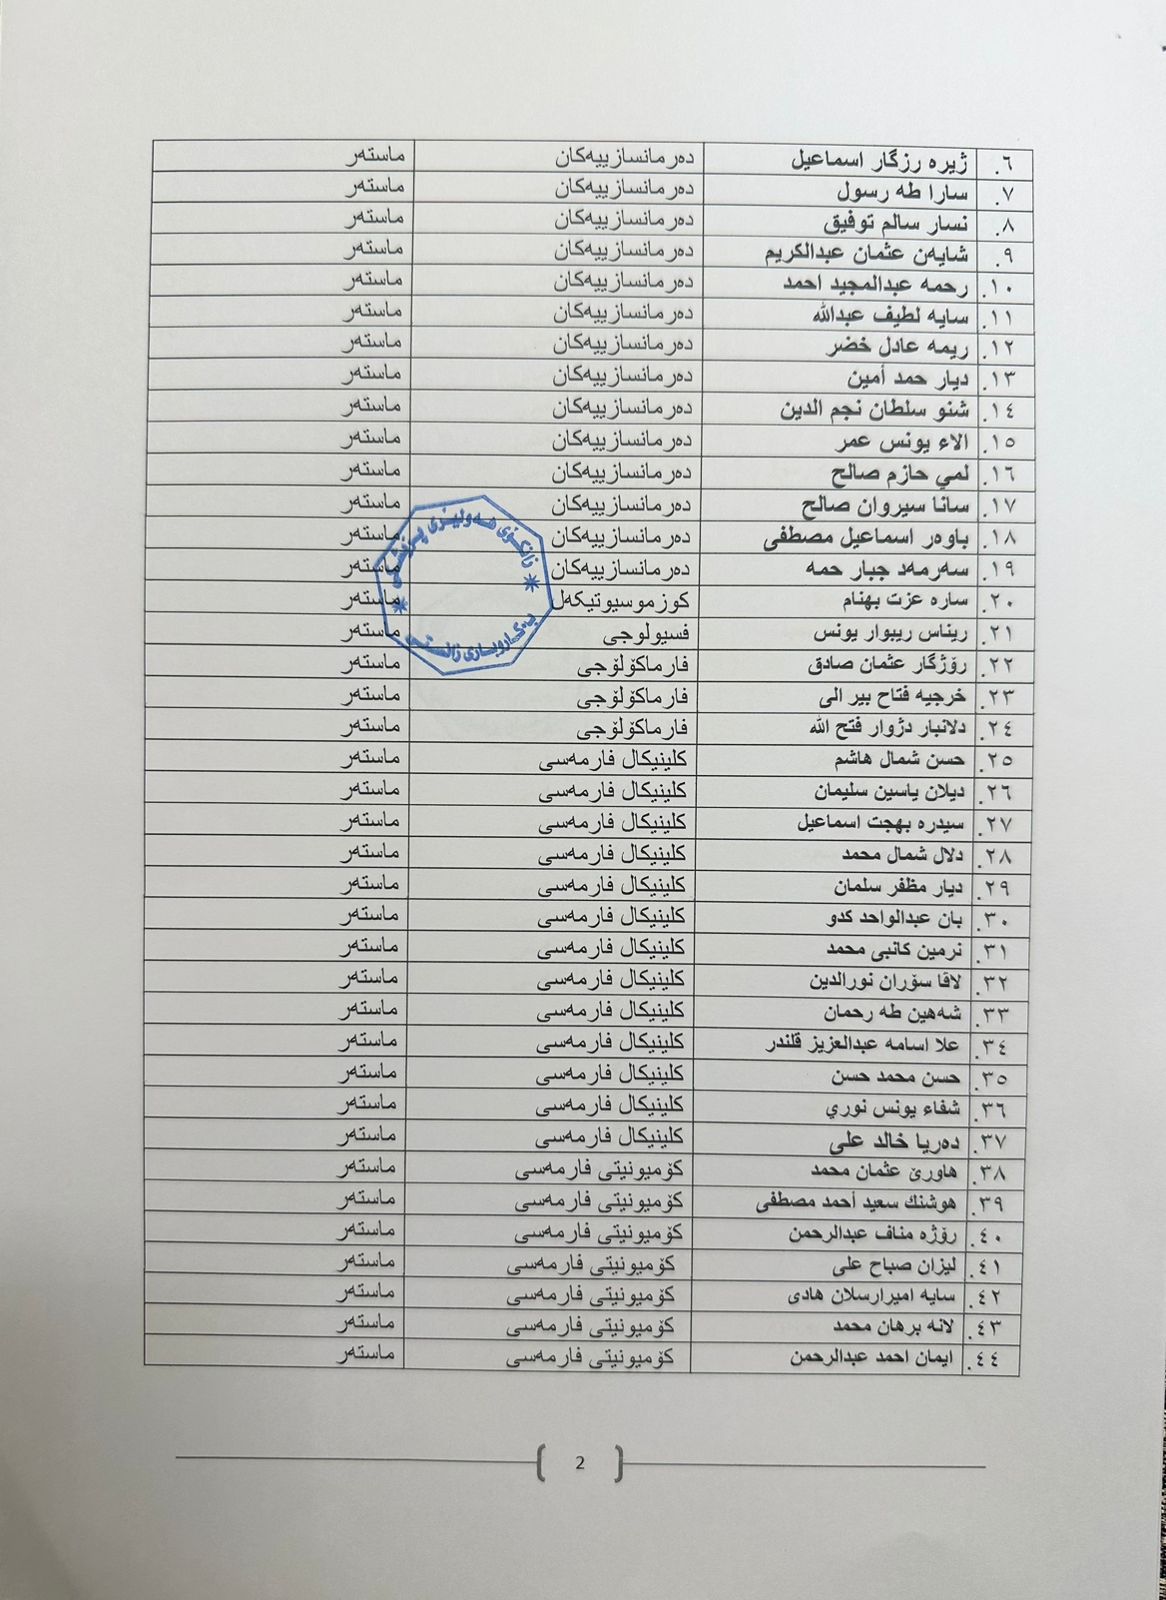 ٦. ژیره رزگار اسماعیل دەرمانسازییەکان ماستەر
٧. سارا طه رسول دەرمانسازییەکان ماستەر
٨. نسار سالم توفیق دەرمانسازییەکان ماستەر
٩. شایەن عثمان عبدالکریم دەرمانسازییەکان ماستەر
١٠. رحمه عبدالمجید احمد دەرمانسازییەکان ماستەر
١١. سایه لطیف عبدالله دەرمانسازییەکان ماستەر
١٢. ریمه عادل خضر دەرمانسازییەکان ماستەر
١٣. دیار حمد أمین دەرمانسازییەکان ماستەر
١٤. شنو سلطان نجم الدین دەرمانسازییەکان ماستەر
١٥. الاء یونس عمر دەرمانسازییەکان ماستەر
١٦. لمي حازم صالح دەرمانسازییەکان ماستەر
١٧. سانا سیروان صالح دەرمانسازییەکان ماستەر
١٨. باوەر اسماعیل مصطفی دەرمانسازییەکان ماستەر
١٩. سەرمەد جبار حمه دەرمانسازییەکان ماستەر
٢٠. ساره عزت بهنام کوزموسیوتیکەل ماستەر
٢١. ریناس ریبوار یونس فسیولوجی ماستەر
٢٢. رۆژگار عثمان صادق فارماکۆلۆجی ماستەر
٢٣. خرجیه فتاح بیر الی فارماکۆلۆجی ماستەر
٢٤. دلانبار دژوار فتح الله فارماکۆلۆجی ماستەر
٢٥. حسن شمال هاشم کلینیکال فارمەسی ماستەر
٢٦. دیلان یاسین سلیمان کلینیکال فارمەسی ماستەر
٢٧. سیدره بهجت اسماعیل کلینیکال فارمەسی ماستەر
٢٨. دلال شمال محمد کلینیکال فارمەسی ماستەر
٢٩. دیار مظفر سلمان کلینیکال فارمەسی ماستەر
٣٠. بان عبدالواحد کدو کلینیکال فارمەسی ماستەر
٣١. نرمین کانبی محمد کلینیکال فارمەسی ماستەر
٣٢. لاقا سۆران نورالدین کلینیکال فارمەسی ماستەر
٣٣. شەهین طه رحمان کلینیکال فارمەسی ماستەر
٣٤. علا اسامه عبدالعزیز قلندر کلینیکال فارمەسی ماستەر
٣٥. حسن محمد حسن کلینیکال فارمەسی ماستەر
٣٦. شفاء یونس نوري کلینیکال فارمەسی ماستەر
٣٧. دەریا خالد علی کلینیکال فارمەسی ماستەر
٣٨. هاورێ عثمان محمد کۆمیونیتی فارمەسی ماستەر
٣٩. هوشنك سعید أحمد مصطفی کۆمیونیتی فارمەسی ماستەر
٤٠. رۆژه مناف عبدالرحمن کۆمیونیتی فارمەسی ماستەر
٤١. لیزان صباح علی کۆمیونیتی فارمەسی ماستەر
٤٢. سایه امیرارسلان هادی کۆمیونیتی فارمەسی ماستەر
٤٣. لانه برهان محمد کۆمیونیتی فارمەسی ماستەر
٤٤. ایمان احمد عبدالرحمن کۆمیونیتی فارمەسی ماستەر
زانکۆی هەولێری پزیشکی
2